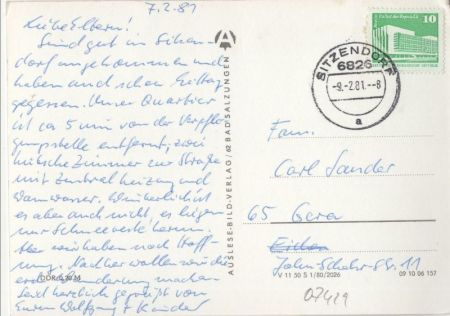 7.2.81
Liebe Eltern!
Sind gut in Sitzen-
dorf angekommen und
haben auch schon Mittag
gegessen. Unser Quartier
ist ca 5 min von der Verpfle-
gungsstelle entfernt, zwei
hübsche Zimmer zur Straße
mit Zentralheizung und
Warmwasser. Winterlich ist
es aber auch nicht, es liegen
nur Schneereste herum.
Aber wir haben noch Hoff-
nung. Nachher wollen wir die
erste Wanderung machen.
Seid herzlich gegrüßt von
Euren Wolfgang + Kinder
AUSLESE-BILD-VERLAG / 62 BAD SALZUNGEN
10
SITZENDORF
6826
-9.-2.81.--8
a
Fam.
Carl Sander
65 Gera
John-Schehr-Str. 11
V 11 50 S 1/80/2026
09 10 06 157
07429